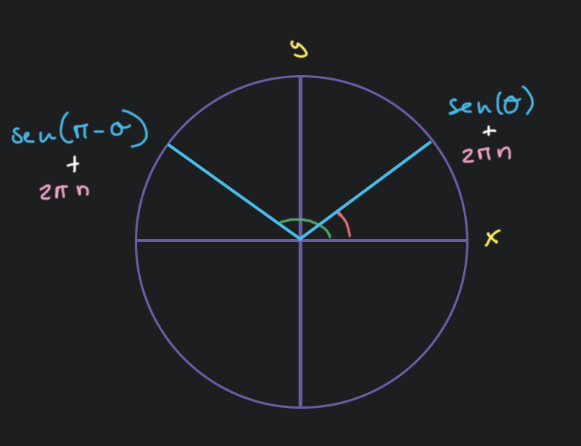 y
sen(θ)
+
2πn
sen(π-θ)
+
2πn
x